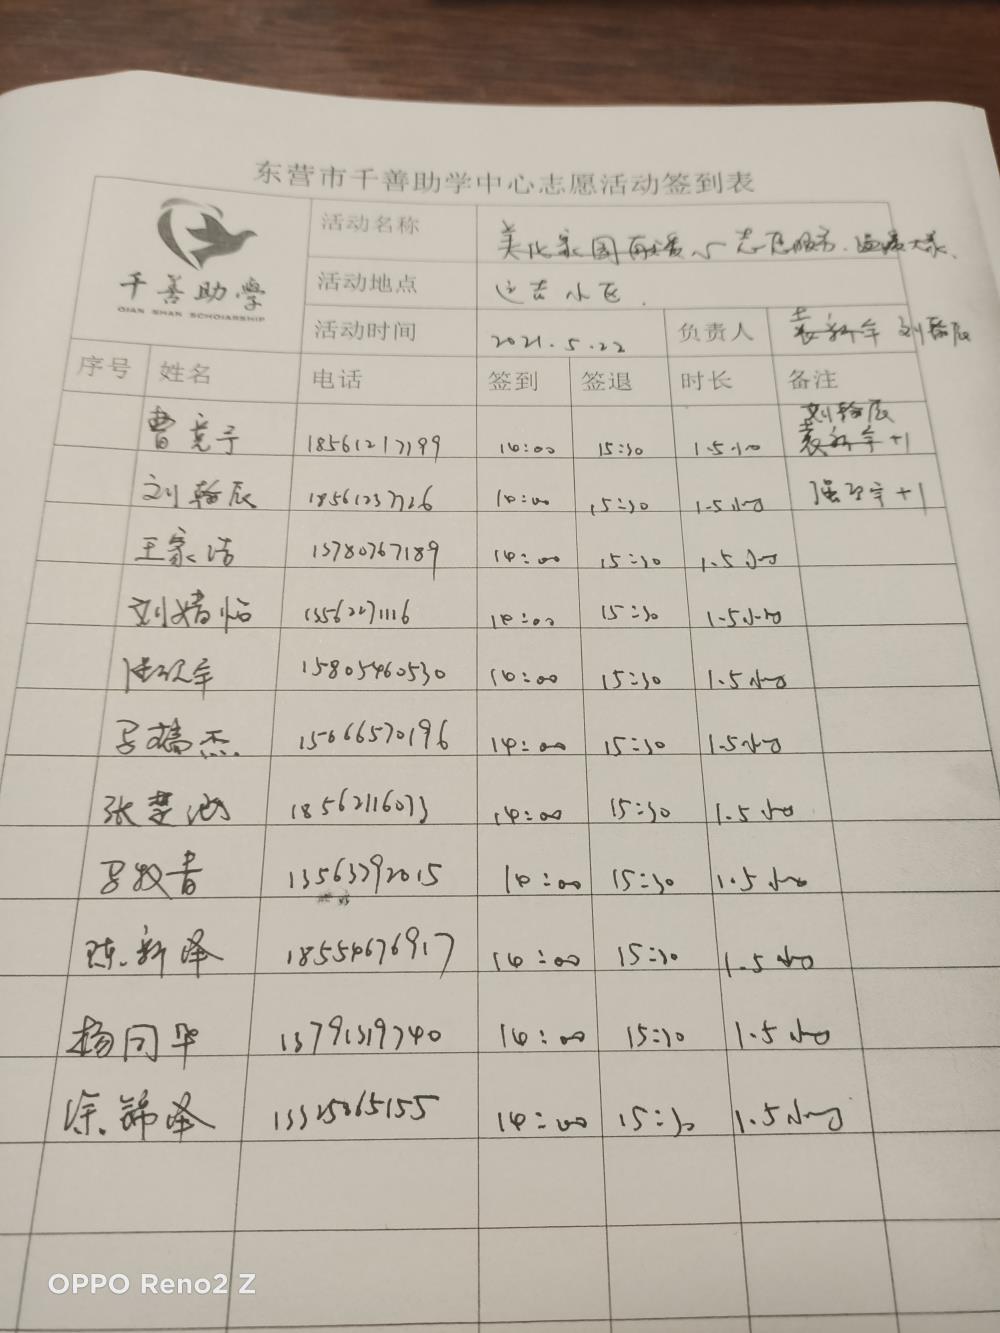 东营市千善助学中心志愿活动签到表
千善助学
QIAN SHAN SCHOLARSHIP
活动名称 美化家园 志愿服务
活动地点 小区
活动时间 2021.5.22 负责人 刘翰辰
序号 姓名 电话 签到 签退 时长 备注
刘翰辰
曹竞予 18561217199 14:00 15:30 1.5小时 +1
刘翰辰 18561237726 14:00 15:30 1.5小时 +1
王家洁 13780767189 14:00 15:30 1.5小时
刘婧怡 13562271116 14:00 15:30 1.5小时
15805460530 14:00 15:30 1.5小时
马 杰 15066570196 14:00 15:30 1.5小时
张楚涵 18562116073 14:00 15:30 1.5小时
马 13563792015 14:00 15:30 1.5小时
陈新泽 18554676917 14:00 15:30 1.5小时
杨同华 13791319740 14:00 15:30 1.5小时
涂锦泽 13325065155 14:00 15:30 1.5小时
OPPO Reno2 Z